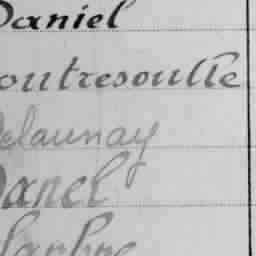 Daniel
outresoulle
Delaunay
Danel